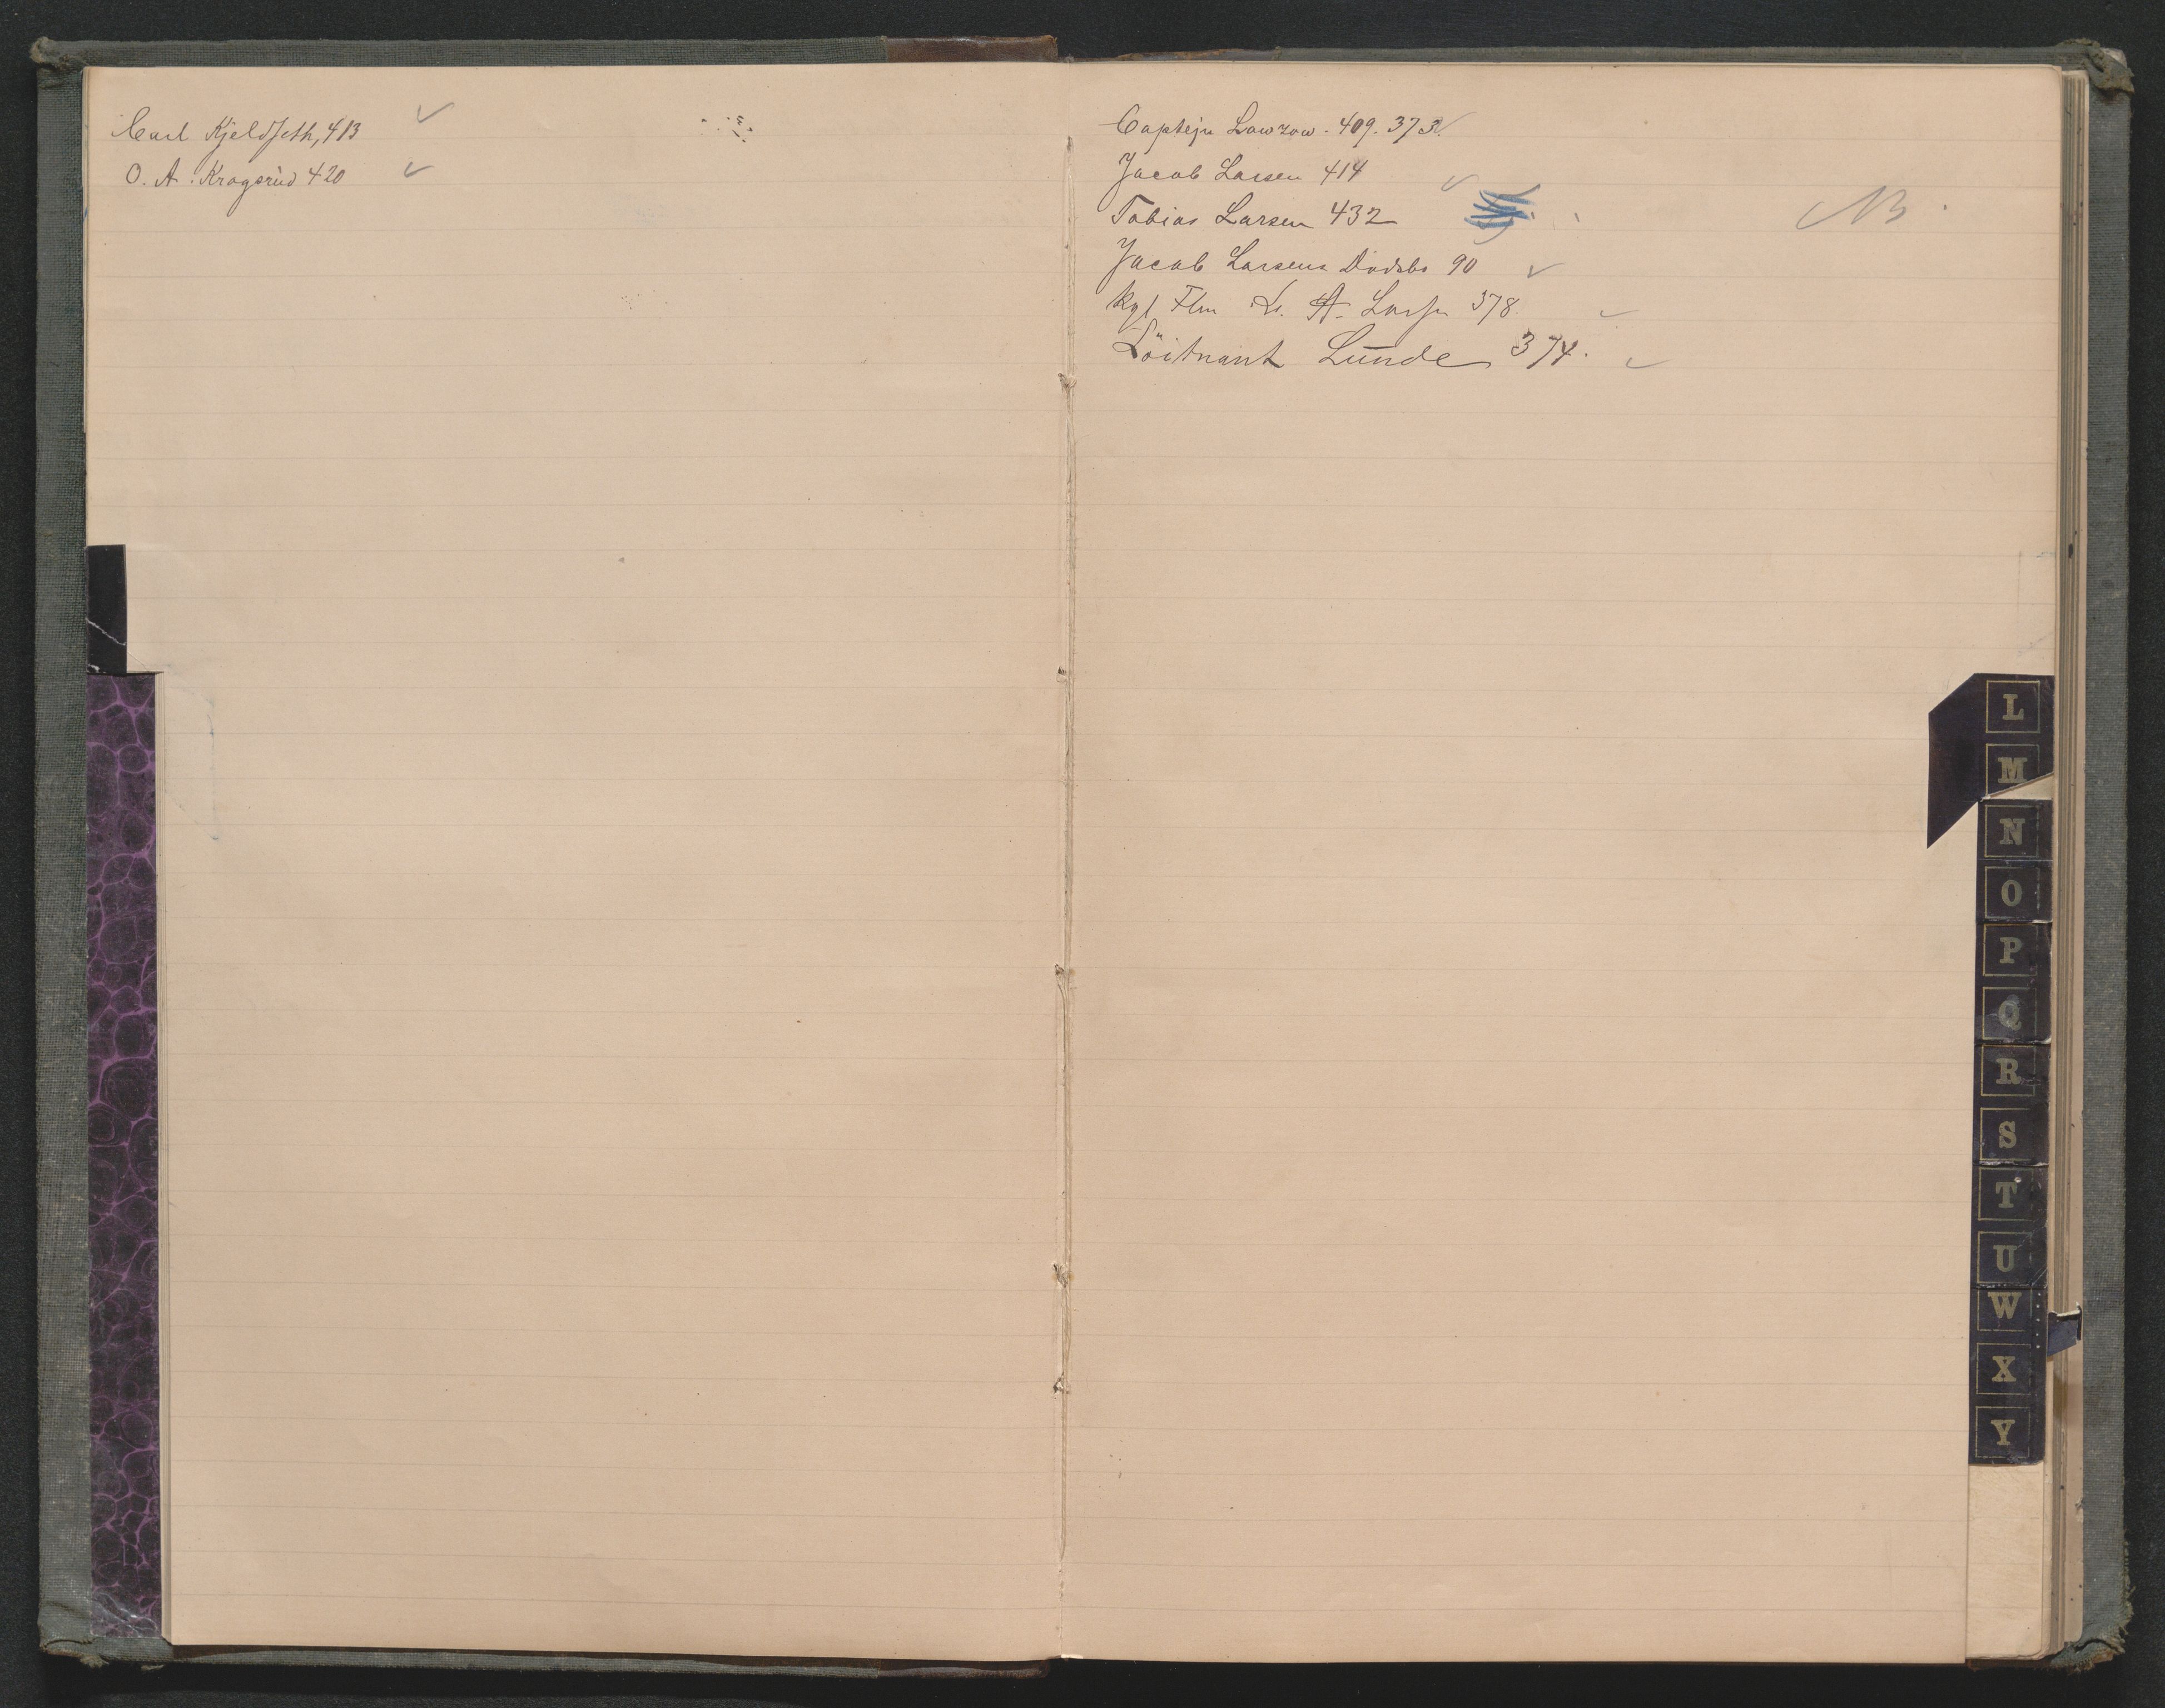 Carl Kjeldseth, 413 ✓
O. A. Kragsrud 420 ✓
Captejn Lowzow. 409. 373. ✓
Jacob Larsen 414 ✓
Tobias Larsen 432
Jacob Larsens Dødsbo 90 ✓
Kgl Flm A. 378. ✓
Löitnant Lunde 374. ✓
L
M
N
O
P
Q
R
S
T
U
W
X
Y